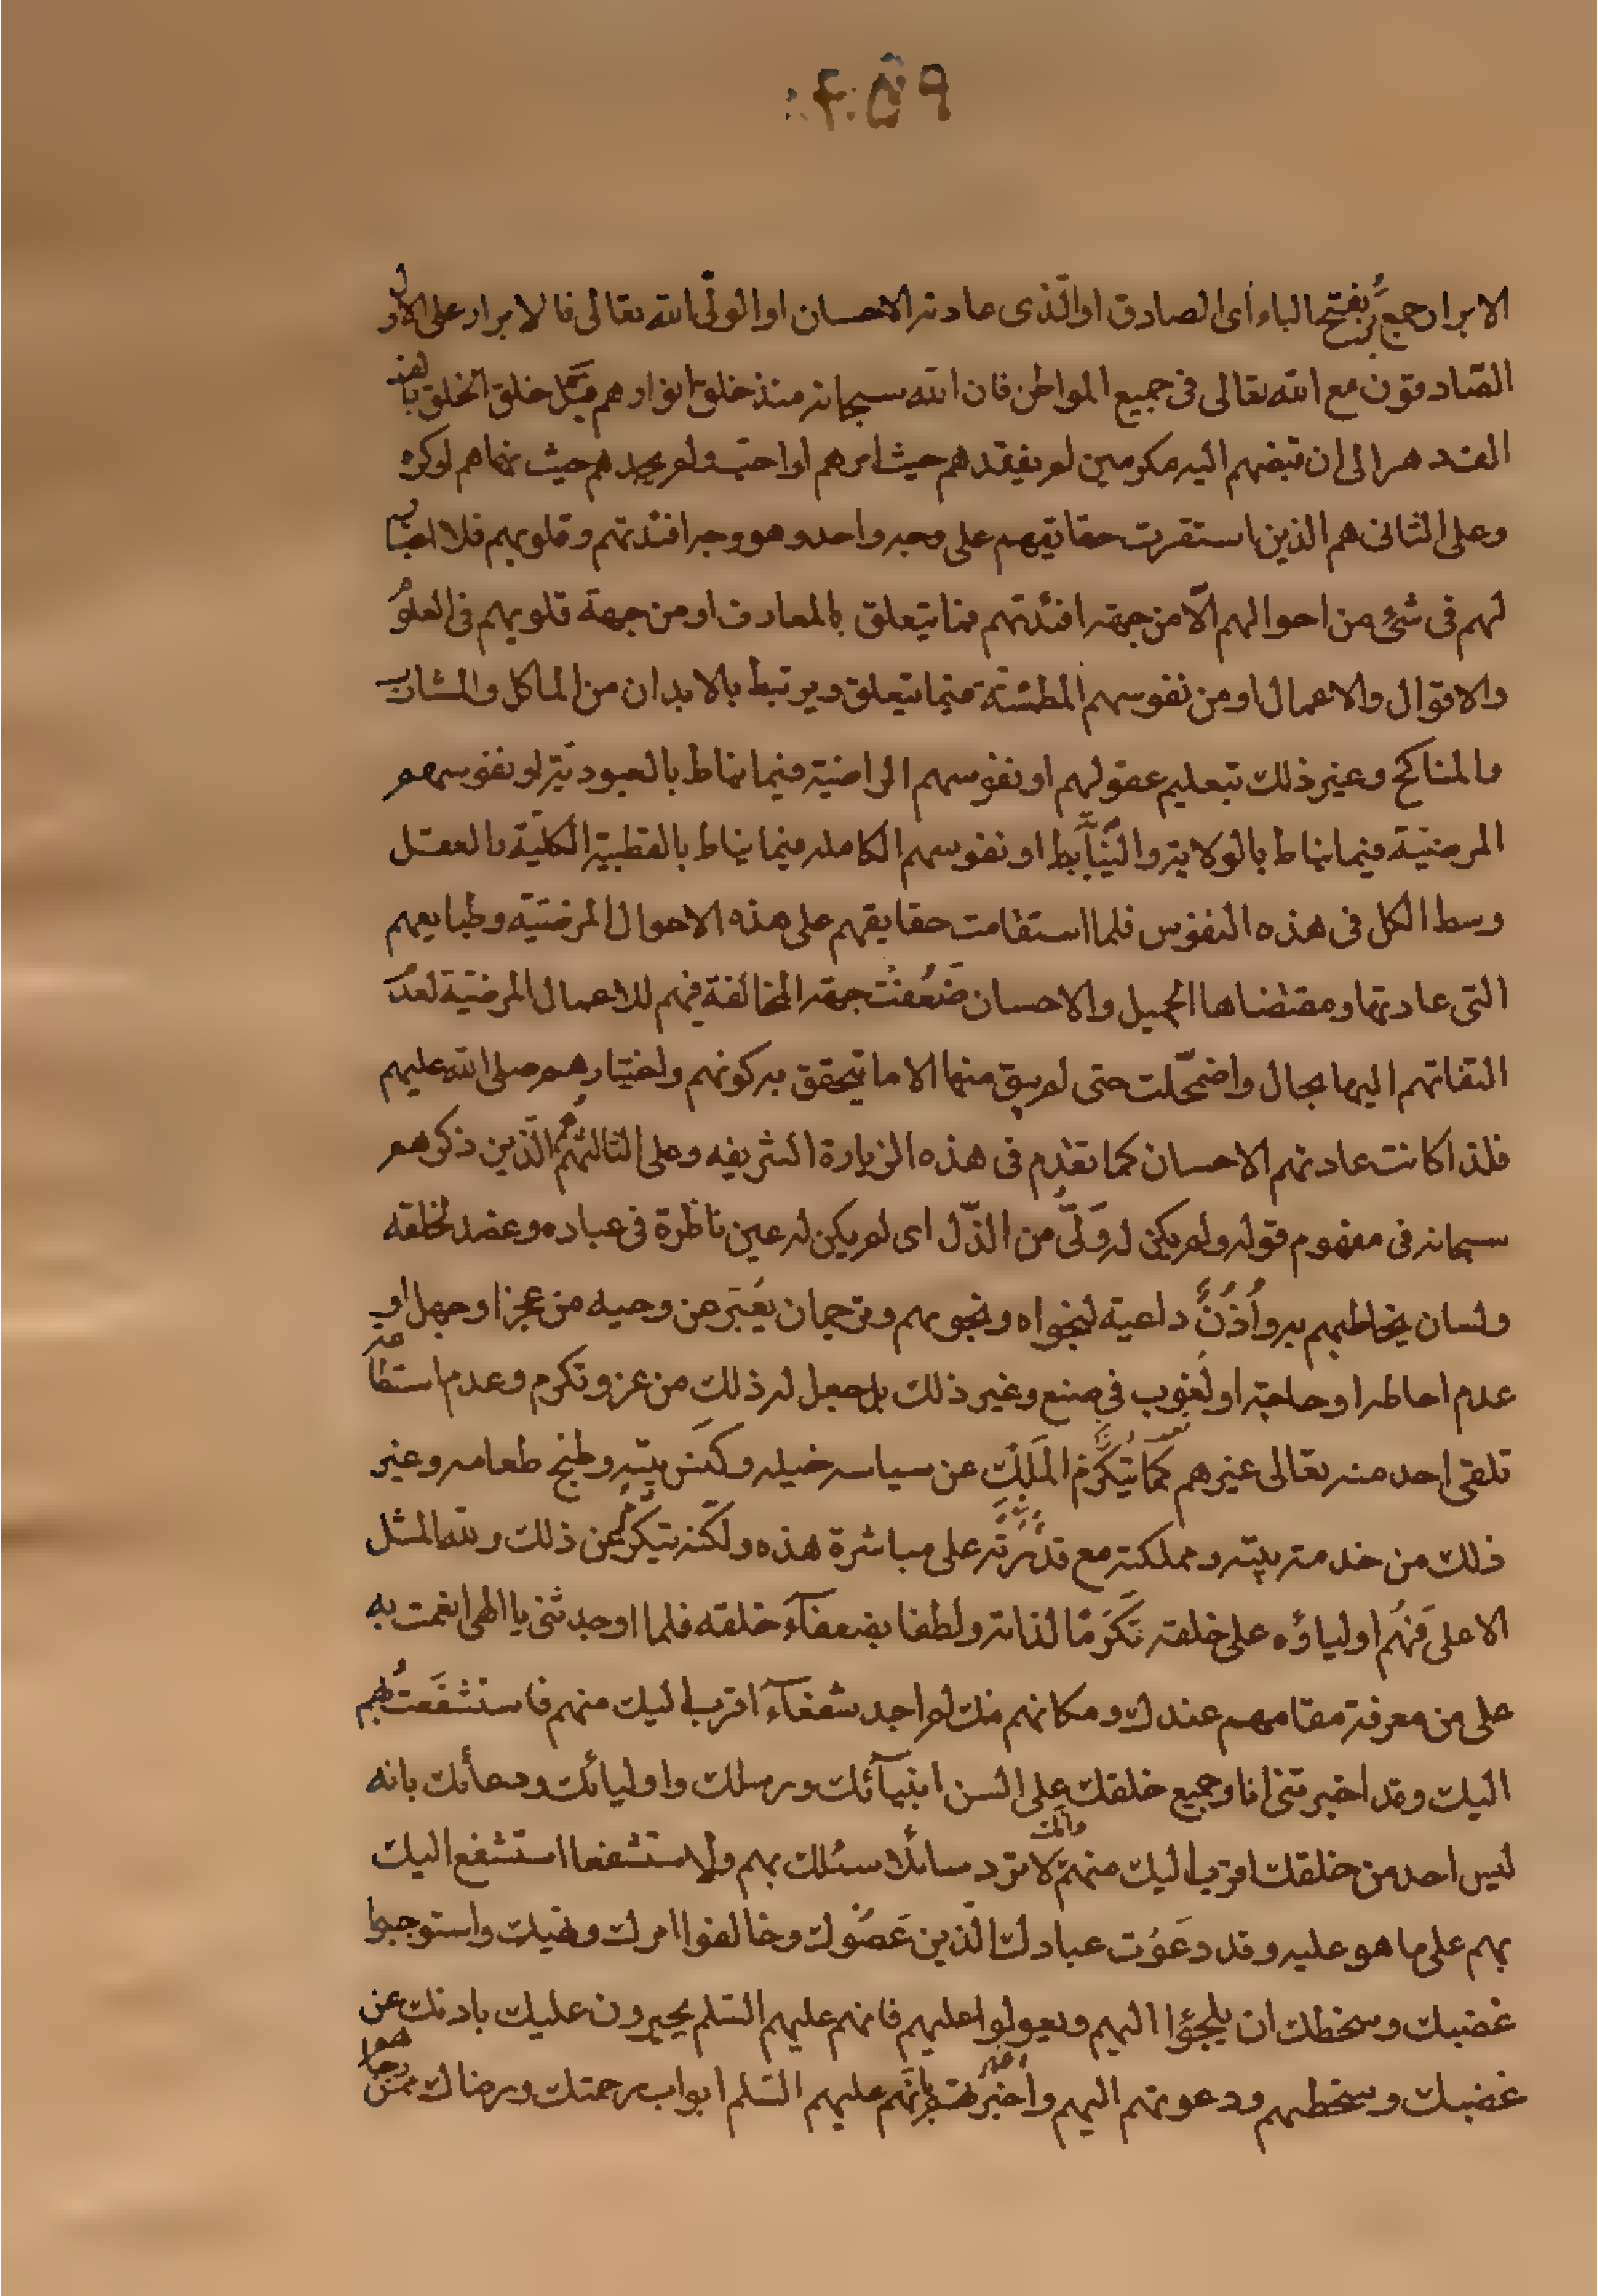 الابرار جمع بَرّ بفتح الباء أى الصادق او الّذى عادته الاحسان او الولىّ لله تعالى فالابرار على الاول
الصّادقون مع الله تعالى فى جميع المواطن فان الله سبحانه منذ خلق انوارهم قبل خلق الخلق بالف
الف دهر الى ان قبضهم اليه مكرمين لم يفقدهم حيث امرهم او احبّ ولم يجدهم حيث نهاهم او كره
وعلى الثانى هم الذين استقرت حقايقهم على وجه واحد وهو وجه افئدتهم وقلوبهم فلا اعتبار
لهم فى شئ من احوالهم الّا من جهة افئدتهم فيما يتعلق بالمعارف او من جهة قلوبهم فى العلوم
والاقوال والاعمال او من نفوسهم المطمئنّة فيما يتعلق ويرتبط بالابدان من المآكل والمشارب
والمناكح وغير ذلك بتعليم عقولهم او نفوسهم الراضية فيما يناط بالعبوديّة او نفوسهم
المرضيّة فيما يناط بالولاية والنيابة او نفوسهم الكامله فيما يناط بالقطبية الكليّة والعقل
وسط الكل فى هذه النفوس فلما استقامت حقايقهم على هذه الاحوال المرضيّة وطبايعهم
التى عادتها ومقتضاها الجميل والاحسان ضَعُفَتْ جهة المخالفة فيهم للاعمال المرضيّة لعدم
التفاتهم اليها بحال واضمحّلت حتى لم يبق منها الا ما يتحقق به كونهم واختيارهم صلى الله عليهم
فلذا كانت عادتهم الاحسان كما تقدم فى هذه الزيارة الشريفه وعلى الثالث هُم الّذين ذكرهم
سبحانه فى مفهوم قوله ولم يكن له وَلىٌّ من الذّل اى لم يكن له عين ناظرة فى عباده وعضد لخلقه
ولسان يخاطبهم به واُذُنٌ داعية لنجواه ونجويهم وترجمان يُعَبّر عن وحيه من عجز او جهل او
عدم احاطه او حاجة او لُغوب فى صنع وغير ذلك بل جعل له ذلك من عز وتكرم وعدم استطاعة
تلقى احد منه تعالى غيرهم كما يَتَكرَّم المَلِكُ عن سياسه خيله وكنس بيته وطبخ طعامه وغير
ذلك من خدمة بيته ومملكته مع قُدْرَتِه على مباشرة هذه ولكنّه يتكرّم عن ذلك ولله المثل
الاعلى فَهُم اولياؤه على خلقه تَكَرُّمًا لذاته ولطفا بضعفآء خلقه فلما اوجدتنى يا الهى انعمت به
على من معرفة مقامهم عندك ومكانهم منك لم اجد شفعآء اقرب اليك منهم فاستشفَعتُ بهم
اليك وقد اخبرتنى انا وجميع خلقك على السن انبيآئك ورسلك واوليائك ودعائك بانه
ليس احد من خلقك اقرب اليك منهم وانك لا تردّ سائلا سئلك بهم ولا مستشفعا استشفع اليك
بهم على ما هو عليه وقد دَعَوْت عبادك الّذين عَصَوْك وخالفوا امرك ونهيك واستوجبوا
غضبك وسخطك ان يلجؤا اليهم ويعولوا عليهم فانهم عليهم السّلم يجيرون عليك باذنك عن
غضبك وسخطهم ودعوتهم اليهم وأخبرتهم بانَّهم عليهم السّلم ابواب رحمتك ورضاك ممّن